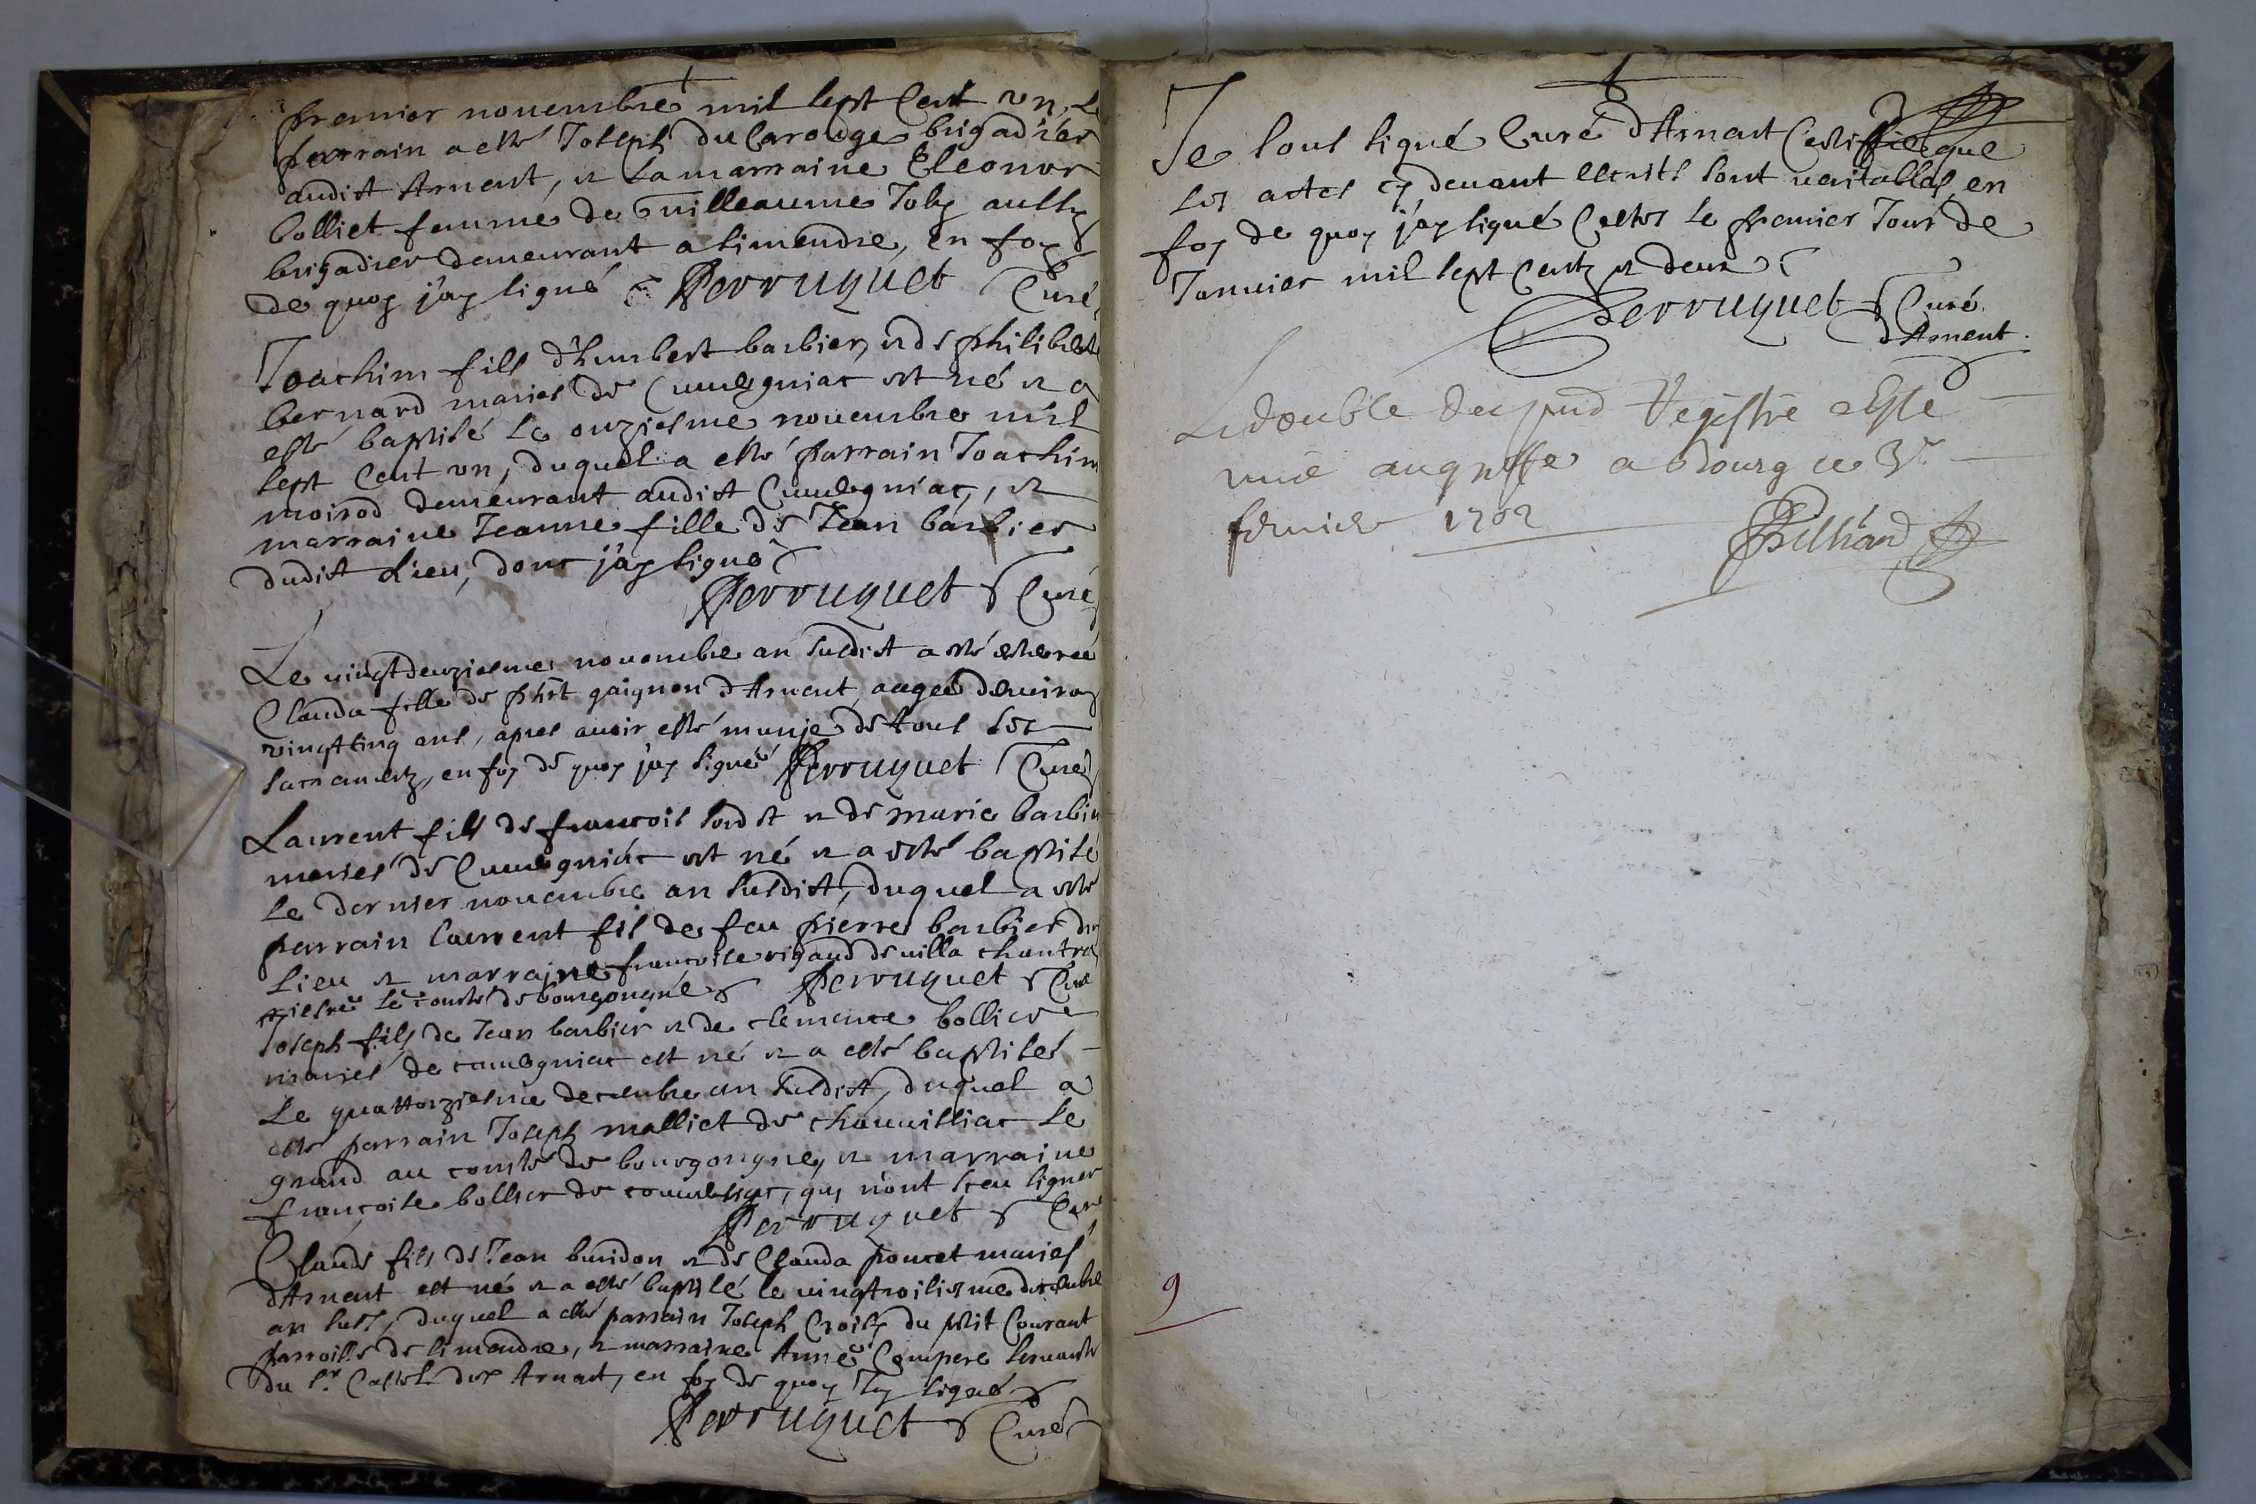 premier novembre mil sept cent un, Le
parrain a esté Joseph du Carouge brigadier
audict Arnent, et La marraine Eleonor
bolliet femme de Guilleaume Joly aussy
brigadier demeurant a simendre, en foy
de quoy j'ay signé Perruquet Curé
Joachim fils d'humbert barbier, et de philiberte
bernard mariés de Cuuegniac est né et a
esté baptisé Le onziesme novembre mil
sept cent un, duquel a esté parrain Joachim
moirod demeurant audict Cuuegniac, et
marraine Jeanne fille de Jean barbier
dudict Lieu, donc j'ay signé
Perruquet Curé
Le vingtdeuziesme novembre an susdict a esté enterrée
Clauda fille de phit gaignon d'Arnent, aagée denviron
vingtcinq ans, apres avoir esté munie de tous les
sacramentz, en foy de quoy j'ay signé Perruquet Curé
Laurent fils de françois sordet et de marie barbier
mariés de Cuuegniac est né et a esté baptisé
Le dernier novembre an susdict, duquel a esté
parrain laurent fils de feu pierre barbier du
Lieu et marraine françoise rigaud de villa chantria
Le comté de bourgongne Perruquet Curé
Joseph fils de Jean barbier et de clemence bollier
mariés de cuuegniac est né et a esté baptisé
Le quattorziesme decembre an susdict, duquel a
esté parrain Joseph malliet de chauuilliac Le
grand au comté de bourgongne, et marraine
françoise bollier de cuuegniac, qui n'ont sceu signer
Perruquet Curé
Claude fils de Jean buridon et de Clauda poncet mariés
d'Arnent est né et a esté baptisé le vingtroisiesme decembre
an susd, duquel a esté parrain Joseph Croisy du petit Courant
parroisse de simendre, et marraine Anne Compere servante
du Sr Castel d'Arnent, en foy de quoy J'ay signé
Perruquet Curé
Je soussigné Curé d'Arnent Certiffie que
Les actes cy devant escrits sont veritables, en
foy de quoy j'ay signé Cestes Le premier Jour de
Janvier mil sept centz et deux
Perruquet Curé
d'Arnent.
Le double du pnt Registre a Esté
mis au greffe a Bourg ce 3e
fevrier 1702
9